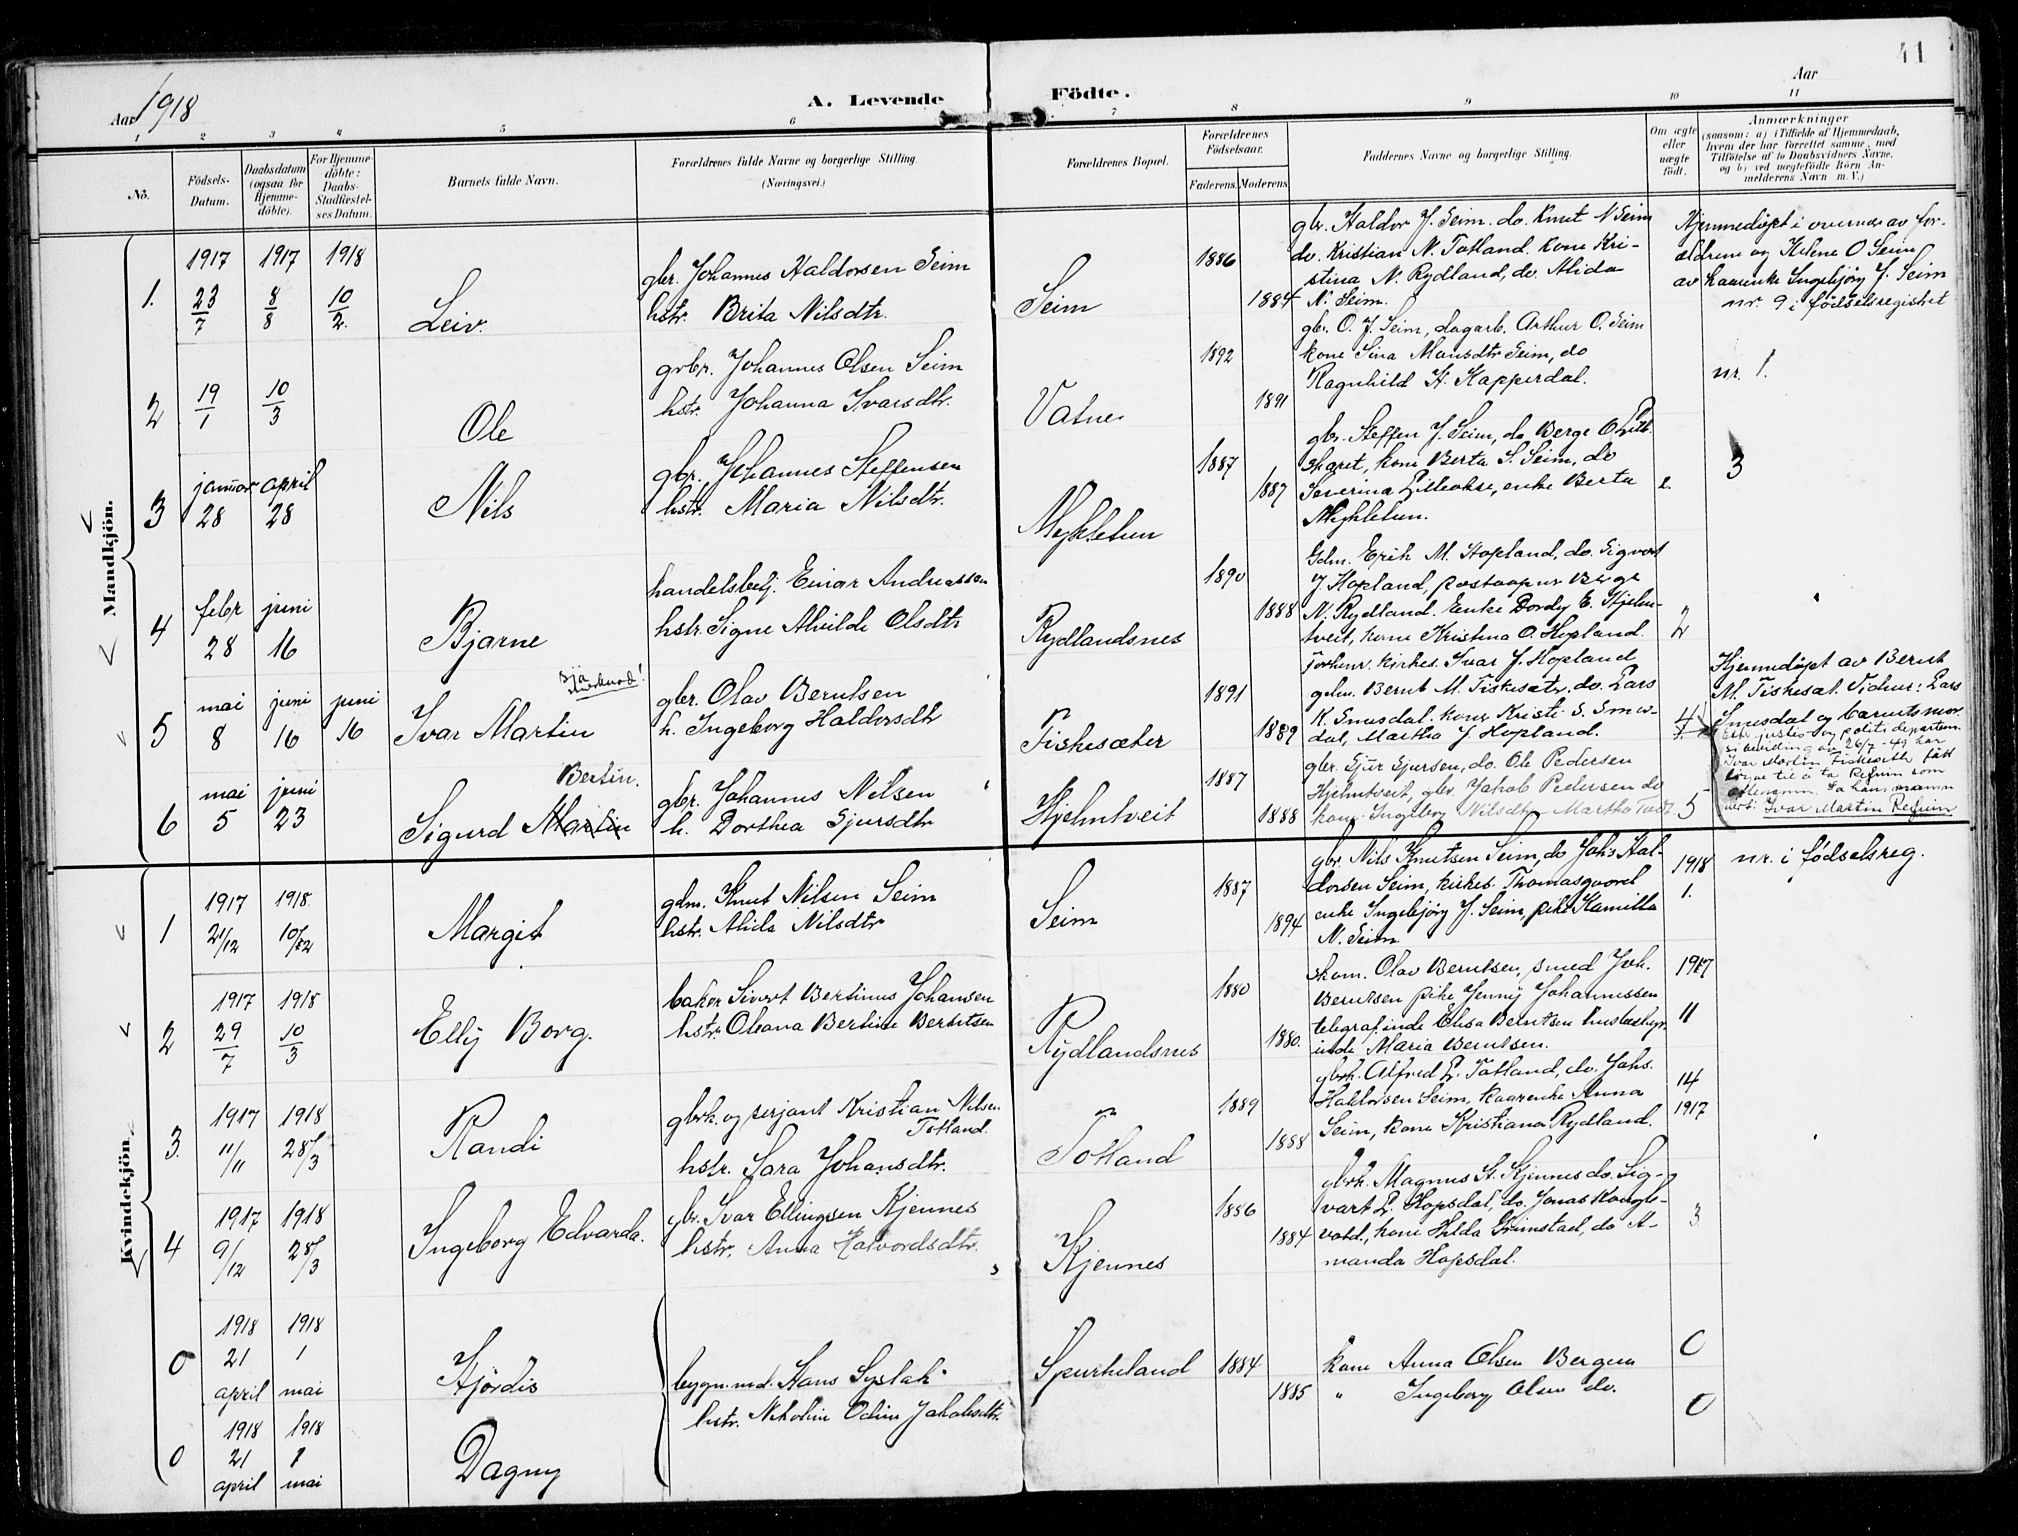 11
Aar 1918
A. Levende Födte.
Aar
1 2 3 4 5 6 7 8 9 10 11
No.
Födsels-Datum.
Daabsdatum (ogsaa for Hjemme-döbte).
For Hjemme-döbte: Daabs-Stadfæstel-ses Datum.
Barnets fulde Navn.
Forældrenes fulde Navne og borgerlige Stilling. (Næringsvei.)
Forældrenes Bopæl.
Forældrenes Födselsaar.
Faderens. Moderens
Faddernes Navne og borgerlige Stilling.
Om ægte eller uægte födt.
Anmærkninger
(saasom: a) i Tilfælde af Hjemmedaab,
hvem der har forrettet samme, med
Tilföielse af to Daabsvidners Navne,
og b) ved uægtefödte Börn An-
melderens Navn m. V.)
Mandkjön.
1. 1917 23/7 1917 8/8 1918 10/2.
Leiv.
gbr. Johannes Haldorsen Seim
hstr. Brita Nilsdtr.
Seim
1886
1884
gbr. Haldor J. Seim. do. Knut N Seim
do. Kristian N. Totland. kone Kri-
stina N. Rydland, do. Alida
N. Seim.
Hjemmedöpt i overvær av for-
ældrene og Helene O Seim
av kaarenke Ingebjörg J. Seim
nr. 9 i födselsregistret
2 19/1 10/3
Ole
grbr. Johannes Olsen Seim
hstr. Johanna Ivarsdtr.
Vatne
1892
1891
gbr. O. J. Seim, dagarb. Arthur O. Seim
kone Sina Mansdtr Seim, do
Ragnhild H. Kapperdal.
nr. 1.
3 januar 28 april 28
Nils
gbr. Johannes Steffensen
hstr. Maria Nilsdtr.
Mykletun
1887
1887
gbr. Steffen J. Seim, do Berge O
skaret, kone Berta S. Seim, do
Severina Lilleokse, enke Berta
Myhletun.
3
4 febr 28 juni 16
Bjarne
handelsbetj. Einar Andreassen
hstr. Signe Alvilde Olsdtr
Rydlandsnes
1890
1888
Gdm. Erik M. Hopland, do. Sigvart
J Hopland, postaapner Berge
N. Rydland. Enke Dordy E. Hjelm-
tveit, kone Kristina O. Hopland.
2
5 mai 8 juni 16 juni 16
Ivar Martin
Sjå merknad!
gbr. Olav Berntsen
h. Ingeborg Haldorsdtr
Fiskesæter
1891
1889
forhenv. kirkes. Ivar J. Hopland
gdm. Bernt M. Fiskesætr, do. Lars
K. Smesdal. koner Kristi S. Smes-
dal, Martha J Hopland.
4
Hjemmedöpt av Bernt
M. Fiskesæt. Vidner: Lars
Smesdal og barnets mor.
Etter justis og politidepartem.
si bevilling av 26/7-49 har
Ivar Martin Fiskesæth fått
löyve til å ta Refsim som
ettenamn.
vert: Ivar Martin Refsim
6 mai 5 juni 23
Sigurd Martin Bertin.
gbr. Johannes Nilsen
h. Dorthea Sjursdtr
Hjelmtveit
1887
1888
gbr. Sjur Sjursen, do. Ole Pedersen
Hjelmtveit, gbr. Jakob Pedersen do
kone Ingeborg Nilsdtr Martha
5
Kvindekjön.
1 1917 21/12 1918 10/2
Margit
gdm. Knut Nilsen Seim
hstr. Alida Nilsdtr
Seim
1887
1894
gbr. Nils Knutsen Seim, do Johs Hal-
dorsen Seim, kirkes. Thomasgaard
enke Ingebjörg J. Seim, pike Kamilla
N. Seim
1918
1.
nr. i födselsreg.
2 1917 29/7 1918 10/3
Elly Borg.
baker Sivert Bertinus Johansen
hstr. Oleana Bertine Berntsen
Rydlandsnes
1880
1880.
skom. Olav Berntsen, smed Joh.
Berntsen pike Jenny Johannessen
telegrafinde Elisa Berntsen husbestyr
inde Maria Berntsen.
1917
11
3. 1917 11/11 1918 28/3
Randi
gbrk. og serjant Kristian Nilsen
Totland.
hstr. Sara Johansdtr.
Totland
1889
1888
gbrk. Alfred L. Totland, do. Johs.
Haldorsen Seim, kaarenke Anna
Seim, kone Kristiana Rydland.
14
1917
4 1917 9/12 1918 28/3
Ingeborg Edvarda.
gbr. Ivar Ellingsen Kjennes
hstr. Anna Halvordsdtr.
Kjennes
1886
1884
gbrk. Magnus H. Kjennes do. Sig-
vart L. Hopsdal, do. Jonas Kougle-
vold., kone Hilda Grimstad, do A-
manda Hopsdal.
3
0 1918 21 april 1918 1 mai
Hjördis
bygn.md. Hans Syslak
hstr. Nikoline Odine Jakobsdtr.
Spurkeland
1884
1885
kone Anna Olsen Bergen
" Ingeborg Olsen do.
0
0
0 1918 21 april 1918 1 mai
Dagny